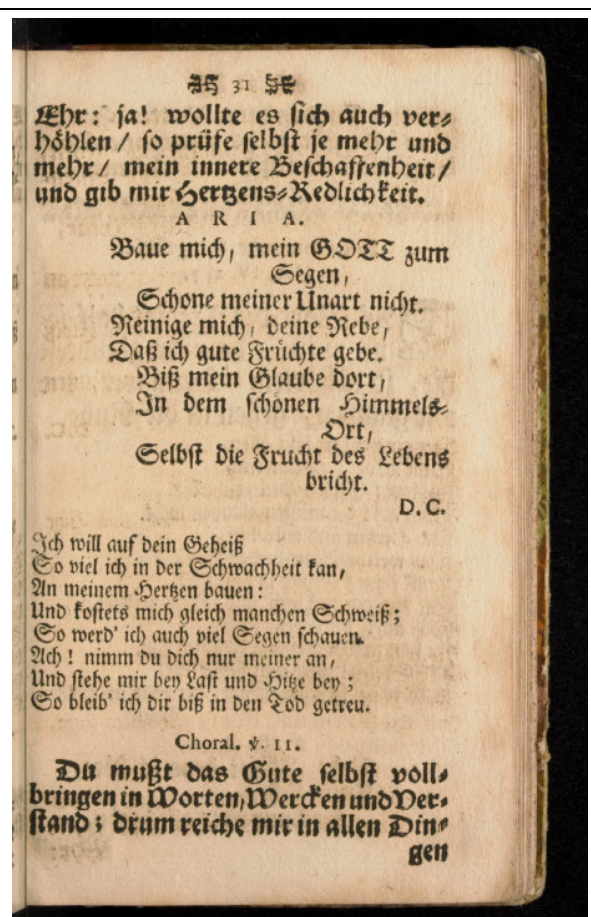 31
Ehr: ja! wollte es sich auch ver-
höhlen / so prüfe selbst je mehr und
mehr / mein innere Beschaffenheit /
und gib mir Hertzens-Redlichkeit.
ARIA.
Baue mich, mein GOTT zum
Segen,
Schone meiner Unart nicht.
Reinige mich, deine Rebe,
Daß ich gute Früchte gebe.
Biß mein Glaube dort,
In dem schönen Himmels-
Ort,
Selbst die Frucht des Lebens
bricht.
D.C.
Ich will auf dein Geheiß
So viel ich in der Schwachheit kan,
An meinem Hertzen bauen:
Und kostets mich gleich manchen Schweiß;
So werd' ich auch viel Segen schauen.
Ach! nimm du dich nur meiner an,
Und stehe mir bey Last und Hitze bey;
So bleib' ich dir biß in den Tod getreu.
Choral. v. 11.
Du mußt das Gute selbst voll-
bringen in Worten, Wercken und Ver-
stand; drum reiche mir in allen Din-
gen